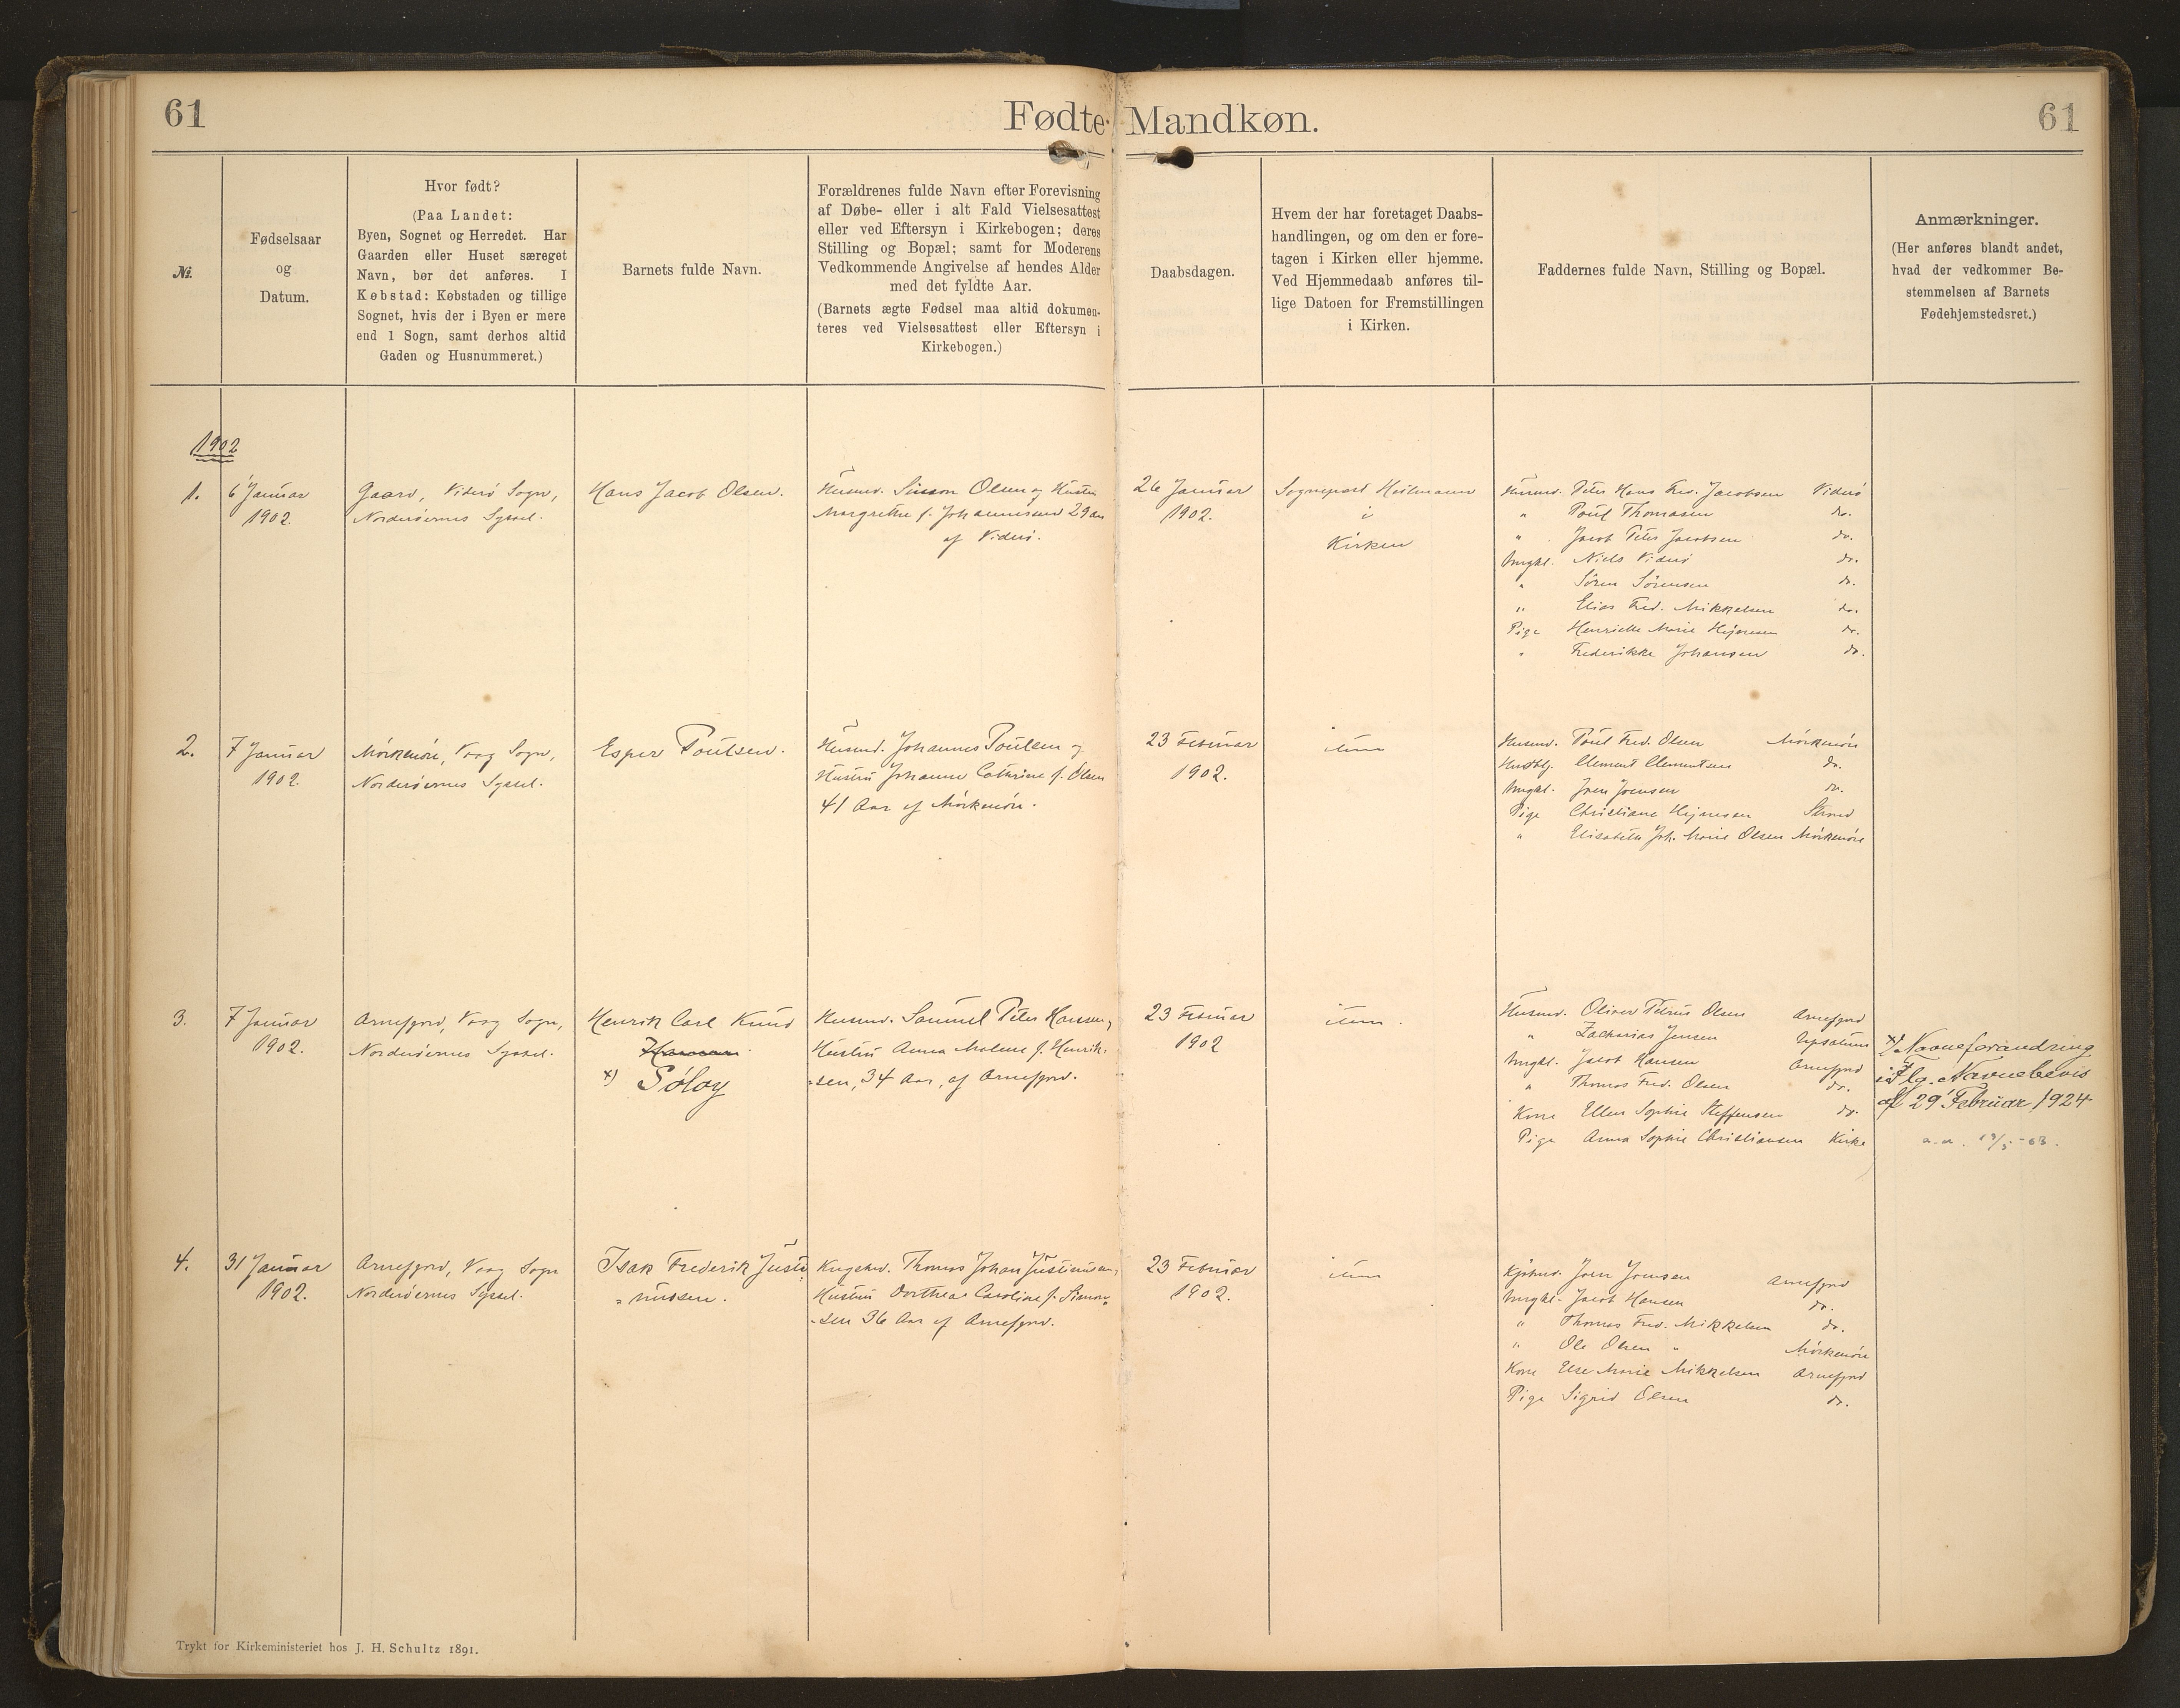 61
Fødte Mandkøn.
61
Nr.
Fødselsaar
og
Datum.
Hvor født?
(Paa Landet:
Byen, Sognet og Herredet. Har
Gaarden eller Huset særeget
Navn, bør det anføres. I
Købstad: Købstaden og tillige
Sognet, hvis der i Byen er mere
end 1 Sogn, samt derhos altid
Gaden og Husnummeret.)
Barnets fulde Navn.
Forældrenes fulde Navn efter Forevisning
af Døbe- eller i alt Fald Vielsesattest
eller ved Eftersyn i Kirkebogen; deres
Stilling og Bopæl; samt for Moderens
Vedkommende Angivelse af hendes Alder
med det fyldte Aar.
(Barnets ægte Fødsel maa altid dokumen-
teres ved Vielsesattest eller Eftersyn i
Kirkebogen.)
Daabsdagen.
Hvem der har foretaget Daabs-
handlingen, og om den er fore-
tagen i Kirken eller hjemme.
Ved Hjemmedaab anføres til-
lige Datoen for Fremstillingen
i Kirken.
Faddernes fulde Navn, Stilling og Bopæl.
Anmærkninger.
(Her anføres blandt andet,
hvad der vedkommer Be-
stemmelsen af Barnets
Fødehjemstedsret.)
1902
1.
6 Januar
1902.
Gaard, Viderø Sogn,
Norderøernes Syssel.
Hans Jacob Olsen.
Husmd. Simon Olsen og Hustru
Margrethe f. Johannesen 29 Aar
af Viderø.
26 Januar
1902.
Sognepræst Heilmann
i
Kirken
Husmd. Peter Hans Fred. Jacobsen Viderø
" Poul Thomasen do.
" Jacob Peter Jacobsen do.
Ungkl. Niels Viderø do.
" Søren Sørensen do.
" Elias Fred. Mikkelsen do.
Pige Henriette Marie Hejnesen do.
" Frederikke Johansen do.
2.
7 Januar
1902.
Mórkenóre, Vaag Sogn,
Norderøernes Syssel.
Esper Poulsen.
Husmd. Johannes Poulsen og
Hustru Johanne Cathrine f. Olsen
41 Aar af Mórkenóre.
23 Februar
1902.
item
Husmd. Poul Fred. Olsen Mórkenóre
Clement Clementsen do.
Ungkl. Joen Joensen do.
Pige Christiane Hejnesen Strand
" Elisabeth Joh. Marie Olsen Mórkenóre
3.
7 Januar
1902.
Arnefjord, Vaag Sogn,
Norderøernes Syssel.
Henrik Carl Knud
Hansen
x) Sóloy
Husmd. Samuel Peter Hansen,
Hustru Anna Malene f. Henrik-
-sen, 34 Aar, af Arnefjord.
23 Februar
1902
item.
Husmd. Oliver Petrus Olsen Arnefjord
" Zacharias Jensen
Ungkl. Jacob Hansen Arnefjord
" Thomas Fred. Olsen do.
Kone Ellen Sophie Steffensen do.
Pige Anna Sophie Christiansen Kirke
x) Navneforandring
iflg. Navnebevis
af 29 Februar 1924
4.
31 Januar
1902.
Arnefjord, Vaag Sogn
Norderøernes Syssel.
Isak Frederik Justi
= nussen.
Kngsbd. Thomas Johan Justinussen,
Hustru Dorthea Caroline f. Simon-
-sen 36 Aar af Arnefjord.
23 Februar
1902.
item
Joen Joensen Arnefjord
Ungkl. Jacob Hansen do.
" Thomas Fred. Mikkelsen do.
" Ole Olsen Mórkenóre
Kone Else Marie Mikkelsen Arnefjord
Pige Sigrid Olsen do.
Trykt for Kirkeministeriet hos J. H. Schultz 1891.